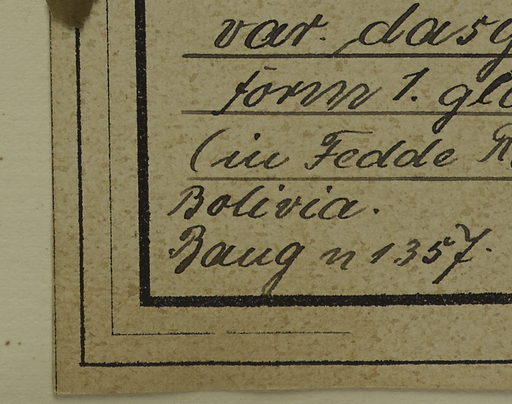 var. dasy
form 1. gl
(in Fedde R
Bolivia.
Baug n 1357.